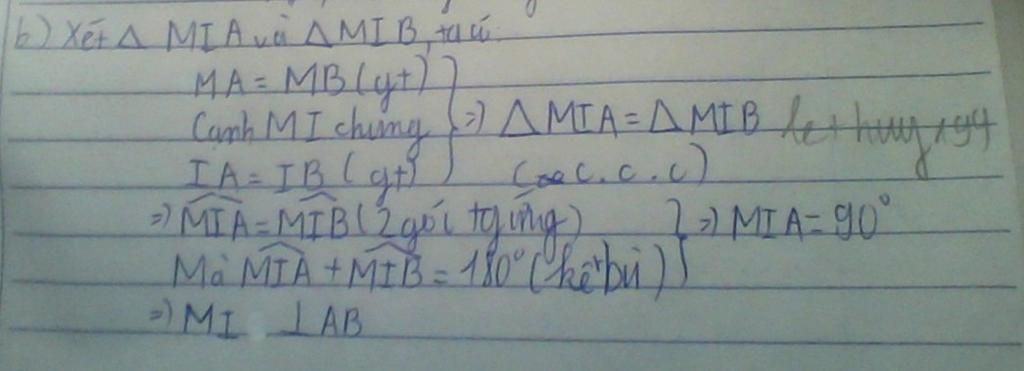 b) Xét Δ MIA và Δ MIB, ta có:
MA = MB (gt)
Cạnh MI chung
IA = IB (gt)
} => Δ MIA = Δ MIB
(c.c.c)
=> \widehat{MIA} = \widehat{MIB} (2 góc tg ứng)
Mà \widehat{MIA} + \widehat{MIB} = 180° (kề bù)
} => MIA = 90°
=> MI ⊥ AB